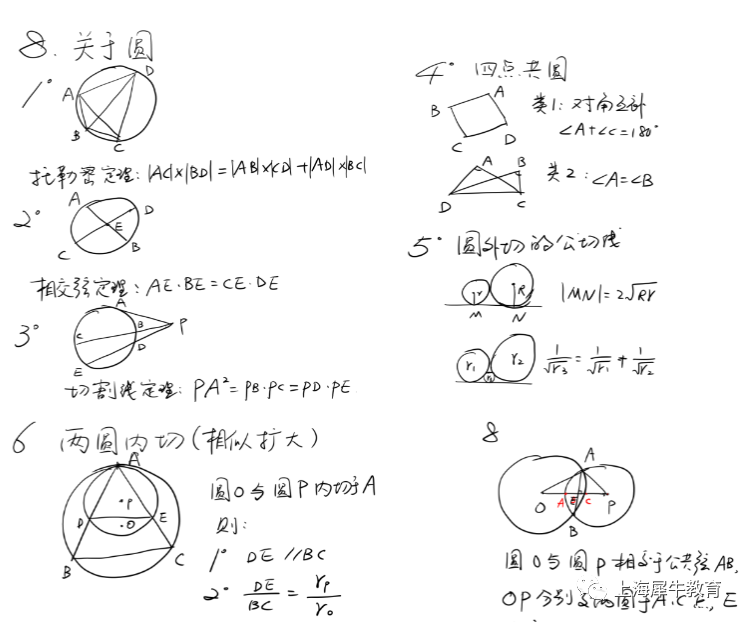 8. 关于圆
1°
A
D
B
C
托勒密定理: |AC|×|BD|=|AB|×|CD|+|AD|×|BC|
2°
A
D
E
C
B
相交弦定理: AE·BE=CE·DE
3°
A
B
P
C
D
E
切割线定理: PA²=PB·PC=PD·PE
4° 四点共圆
A
B
C
D
类1: 对角互补
∠A+∠C=180°
A
B
D
C
类2: ∠A=∠B
5° 圆外切的公切线
r
R
M
N
|MN|=2√Rr
r₁
r₂
1/√r₃=1/√r₁+1/√r₂
6 两圆内切(相似扩大)
A
P
D
O
E
B
C
圆O与圆P内切于A
则:
1° DE//BC
2° DE/BC=rₚ/r₀
8
A
O
A
E
C
P
B
圆O与圆P相交于公共弦AB,
OP分别交两圆于A.C
E
上海犀牛教育